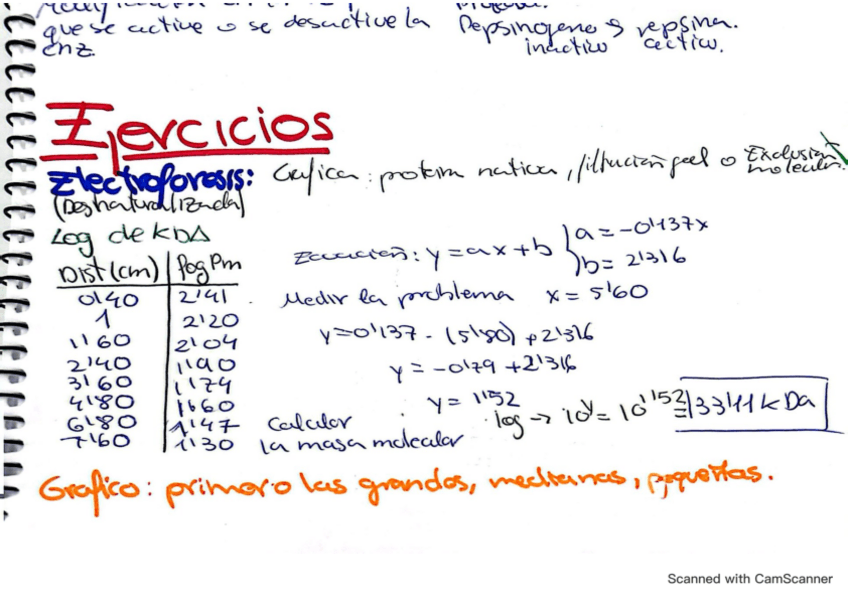 que se active o se desactive la enz.
Pepsinogeno y pepsina.
inactivo activo.
Ejercicios
Electroforesis: Grafica: protein nativa, filtración gel o Exclusión molecular.
(Desnaturalizada)
Log de KDA
Dist (cm) log Pm
0'40 2'41
1 2'20
1'60 2'04
2'40 1'90
3'60 1'74
4'80 1'60
6'80 1'47
7'60 1'30
Ecuación: y = ax + b a = -0'137x
b = 2'316
Medir la problema x = 5'60
y=0'137 - (5'80) + 2'316
y = -0'79 + 2'316
y = 1'52
Calcular
la masa molecular
log → 10^y = 10^1'52 = 33'11 kDa
Grafico: primero las grandes, medianas, pequeñas.
Scanned with CamScanner